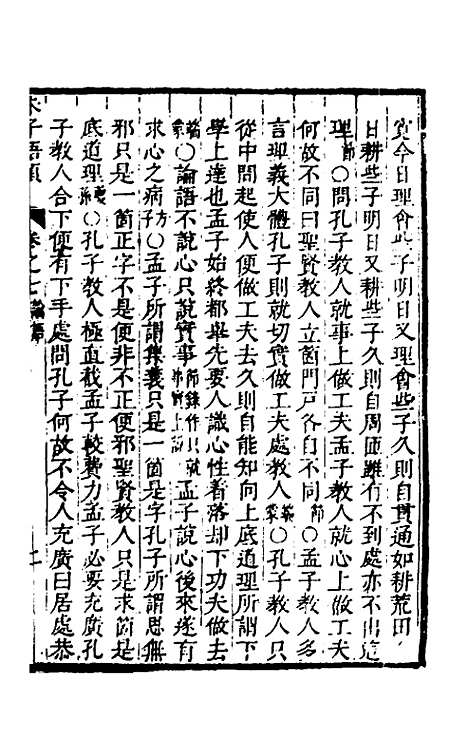 實今日理會些子明日又理會些子久則自貫通如耕荒田今
日耕些子明日又耕些子久則自周匝雖有不到處亦不出這
理節○問孔子教人就事上做工夫孟子教人就心上做工夫
何故不同曰聖賢教人立箇門戶各自不同節○孟子教人多
言理義大體孔子則就切實做工夫處教人○孔子教人只
從中間起使人便做工夫去久則自能知向上底道理所謂下
學上達也孟子始終都舉先要人識心性着落却下功夫做去
○論語不說心只說實事節錄作只就事實上說孟子說心後來遂有
求心之病方子○孟子所謂集義只是一箇是字孔子所謂思無
邪只是一箇正字不是便非不正便邪聖賢教人只是求箇是
底道理○孔子教人極直截孟子較費力孟子必要充廣孔
子教人合下便有下手處問孔子何故不令人充廣曰居處恭
朱子語類 卷之七